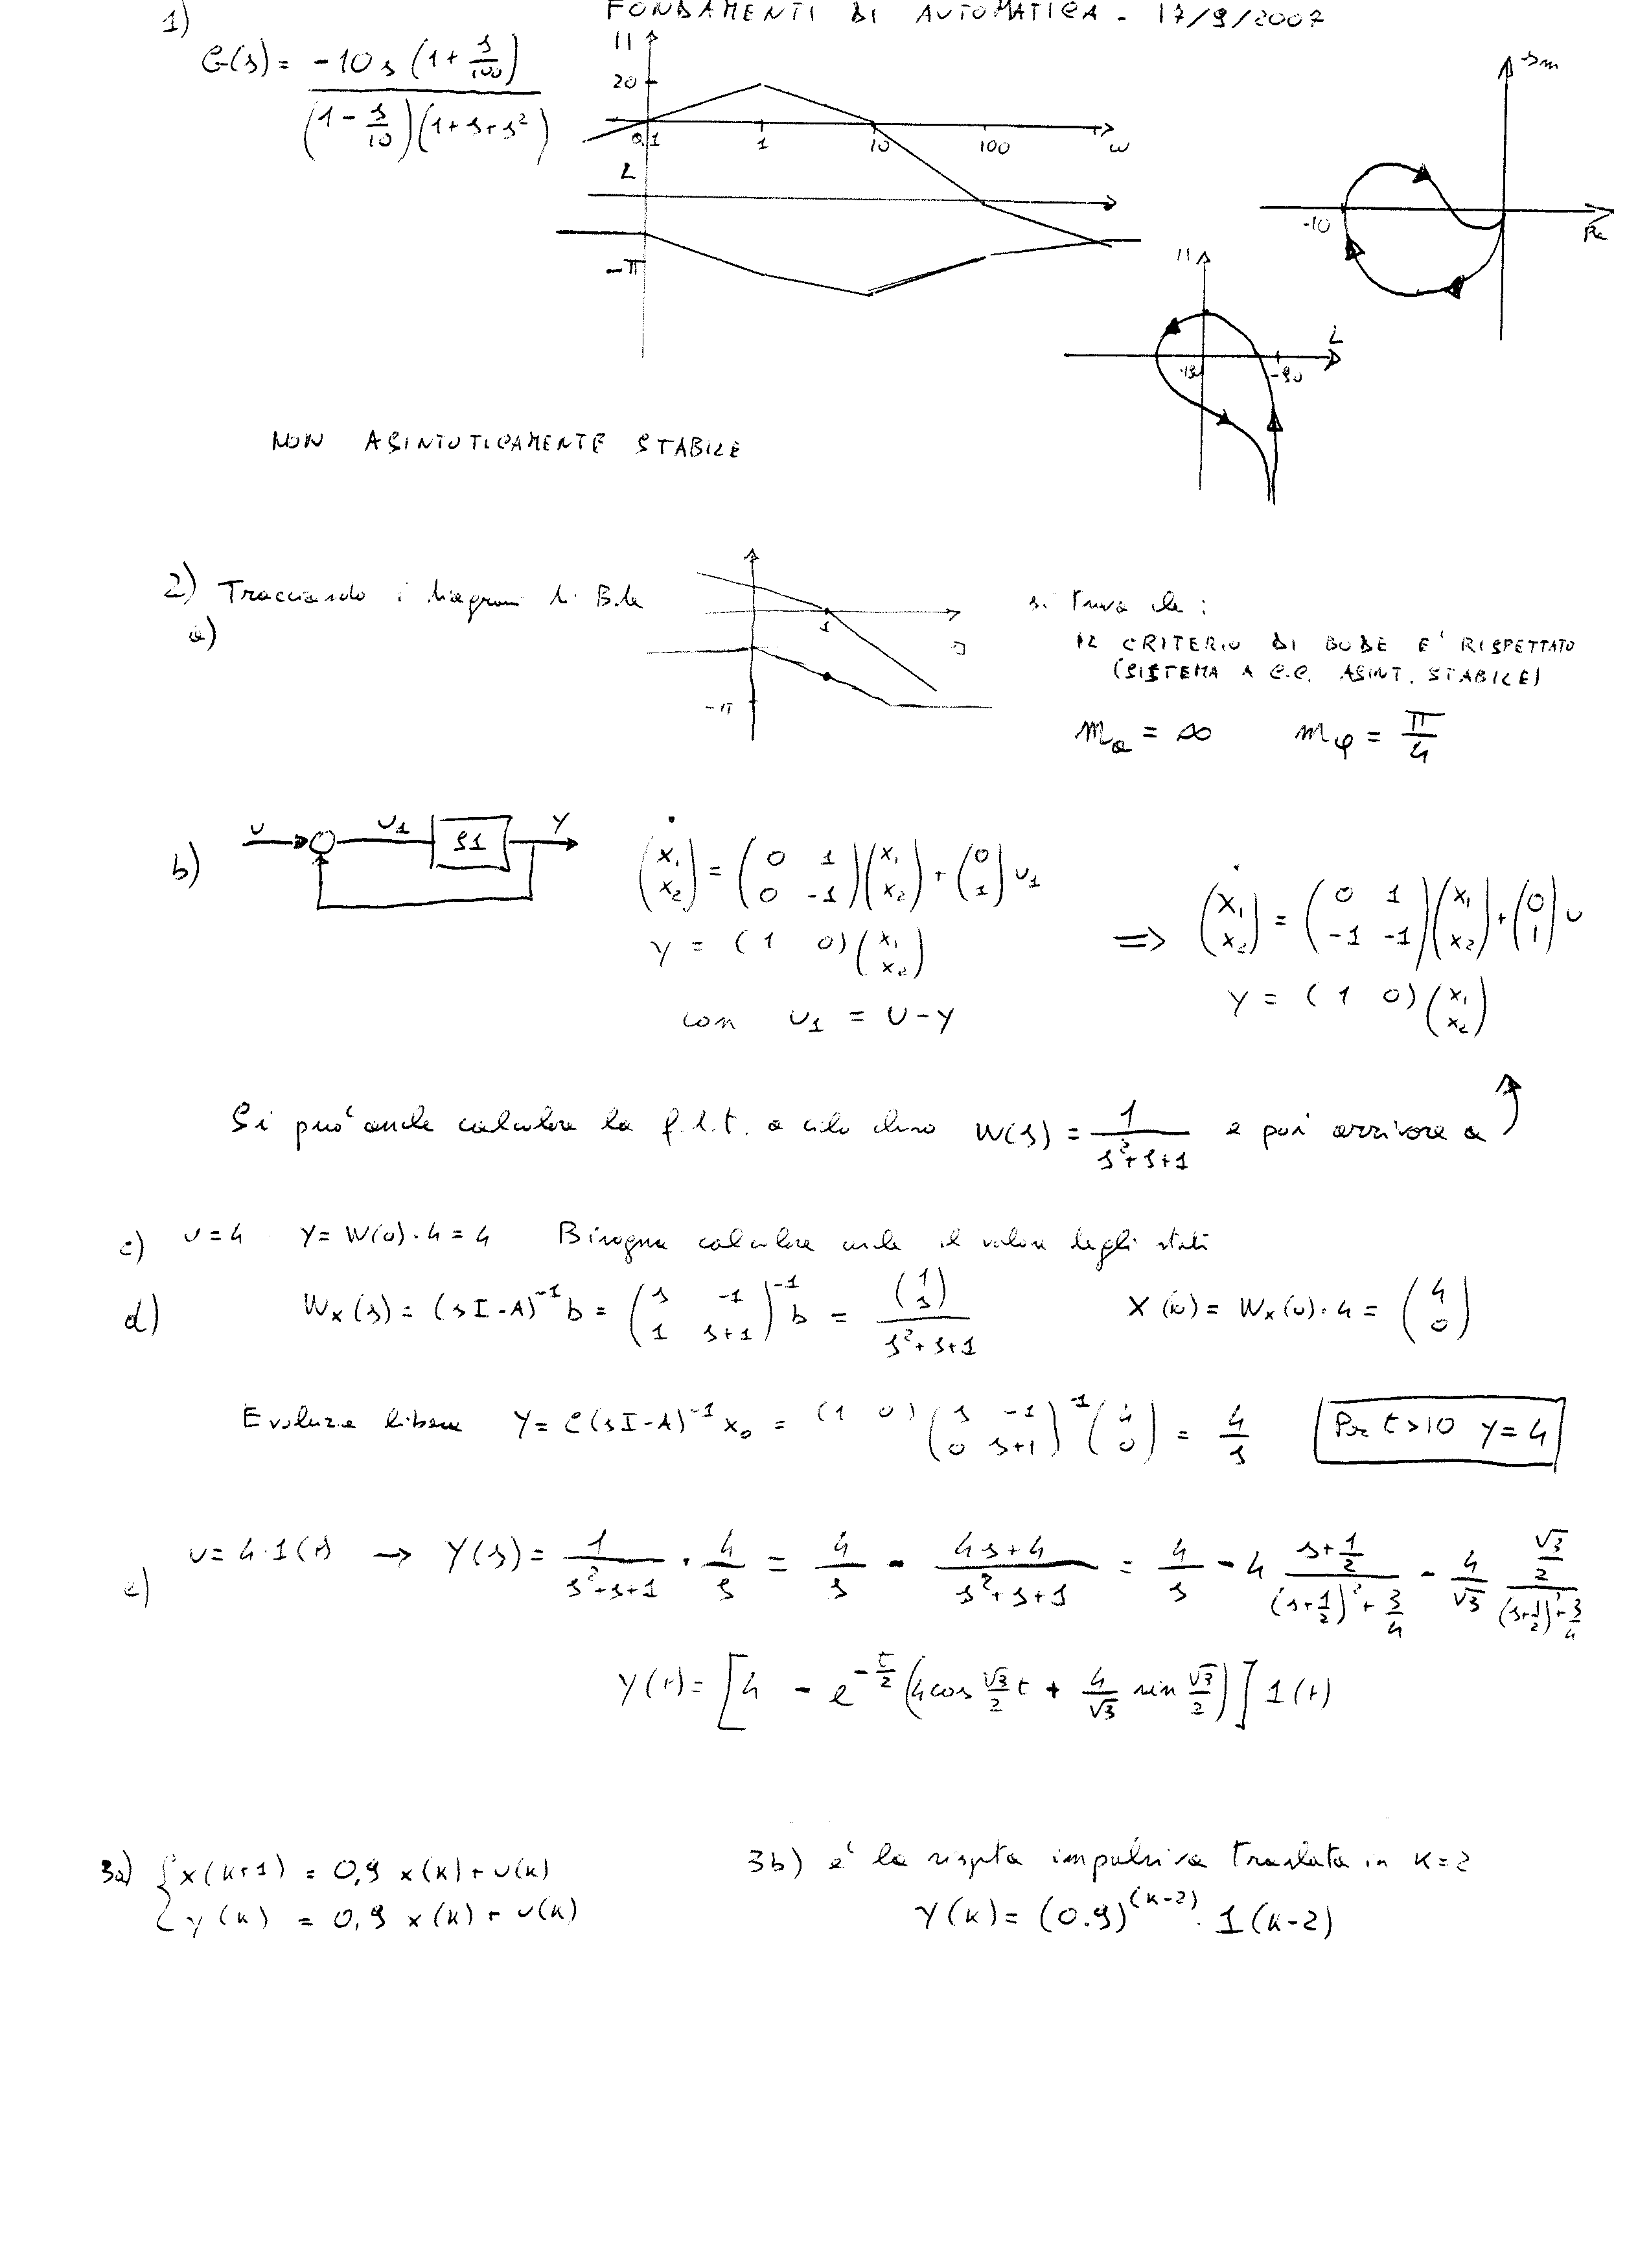 FONDAMENTI DI AUTOMATICA - 17/9/2007
1)
G(s) = -10 s (1 + s/100) / (1 - s/10)(1 + s + s²)
| |
20
0,1 1 10 100 ω
∠
-π
Im
-10
Re
| |
∠
-180 -90
NON ASINTOTICAMENTE STABILE
2) Tracciando i diagrammi di Bode
a)
1
-π
si trova che :
IL CRITERIO DI BODE E' RISPETTATO
(SISTEMA A C.C. ASINT. STABILE)
m_a = ∞ m_φ = π/4
b)
U U1 S1 Y
(x₁ x₂)˙ = (0 1; 0 -1)(x₁ x₂) + (0 1) U1
Y = (1 0)(x₁ x₂)
con U1 = U - Y
⇒ (x₁ x₂)˙ = (0 1; -1 -1)(x₁ x₂) + (0 1) U
Y = (1 0)(x₁ x₂)
Si puo' anche calcolare la f.d.t. a ciclo chiuso W(s) = 1/(s²+s+1) e poi arrivare a
c) U = 4 Y = W(0)·4 = 4 Bisogna calcolare anche il valore degli stati
d) Wx(s) = (sI-A)⁻¹b = (s -1; 1 s+1)⁻¹ b = (1 s)/(s²+s+1) X(10) = Wx(0)·4 = (4 0)
Evoluzione libera Y = C(sI-A)⁻¹ x₀ = (1 0)(s -1; 0 s+1)⁻¹ (4 0) = 4/s Per t>10 y=4
e) U = 4·1(t) → Y(s) = 1/(s²+s+1) · 4/s = 4/s - (4s+4)/(s²+s+1) = 4/s - 4 (s+1/2)/((s+1/2)²+3/4) - 4/√3 (√3/2)/((s+1/2)²+3/4)
Y(t) = [4 - e^(-t/2) (4cos √3/2 t + 4/√3 sin √3/2)] 1(t)
3a) { x(k+1) = 0,9 x(k) + U(k)
y(k) = 0,9 x(k) + U(k)
3b) e' la risposta impulsiva traslata in k=2
Y(k) = (0.9)^(k-2) · 1(k-2)